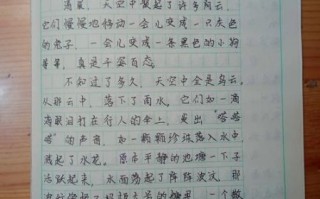 清晨，天空中飘起了许多乌云，
它们慢慢地移动一会儿变成一只灰色
的兔子，一会儿变成一条黑色的小狗
等等，真是千姿百态。
不知过了多久，天空中全是乌云。
从那云中，落下了雨水，它们如一滴
滴眼泪打在行人的伞上，发出“嗒嗒
嗒”的声音，如一颗颗珍珠落入水中
溅起了水花。原本平静的池塘一下子
活跃起来，水面荡起了阵阵波波，那